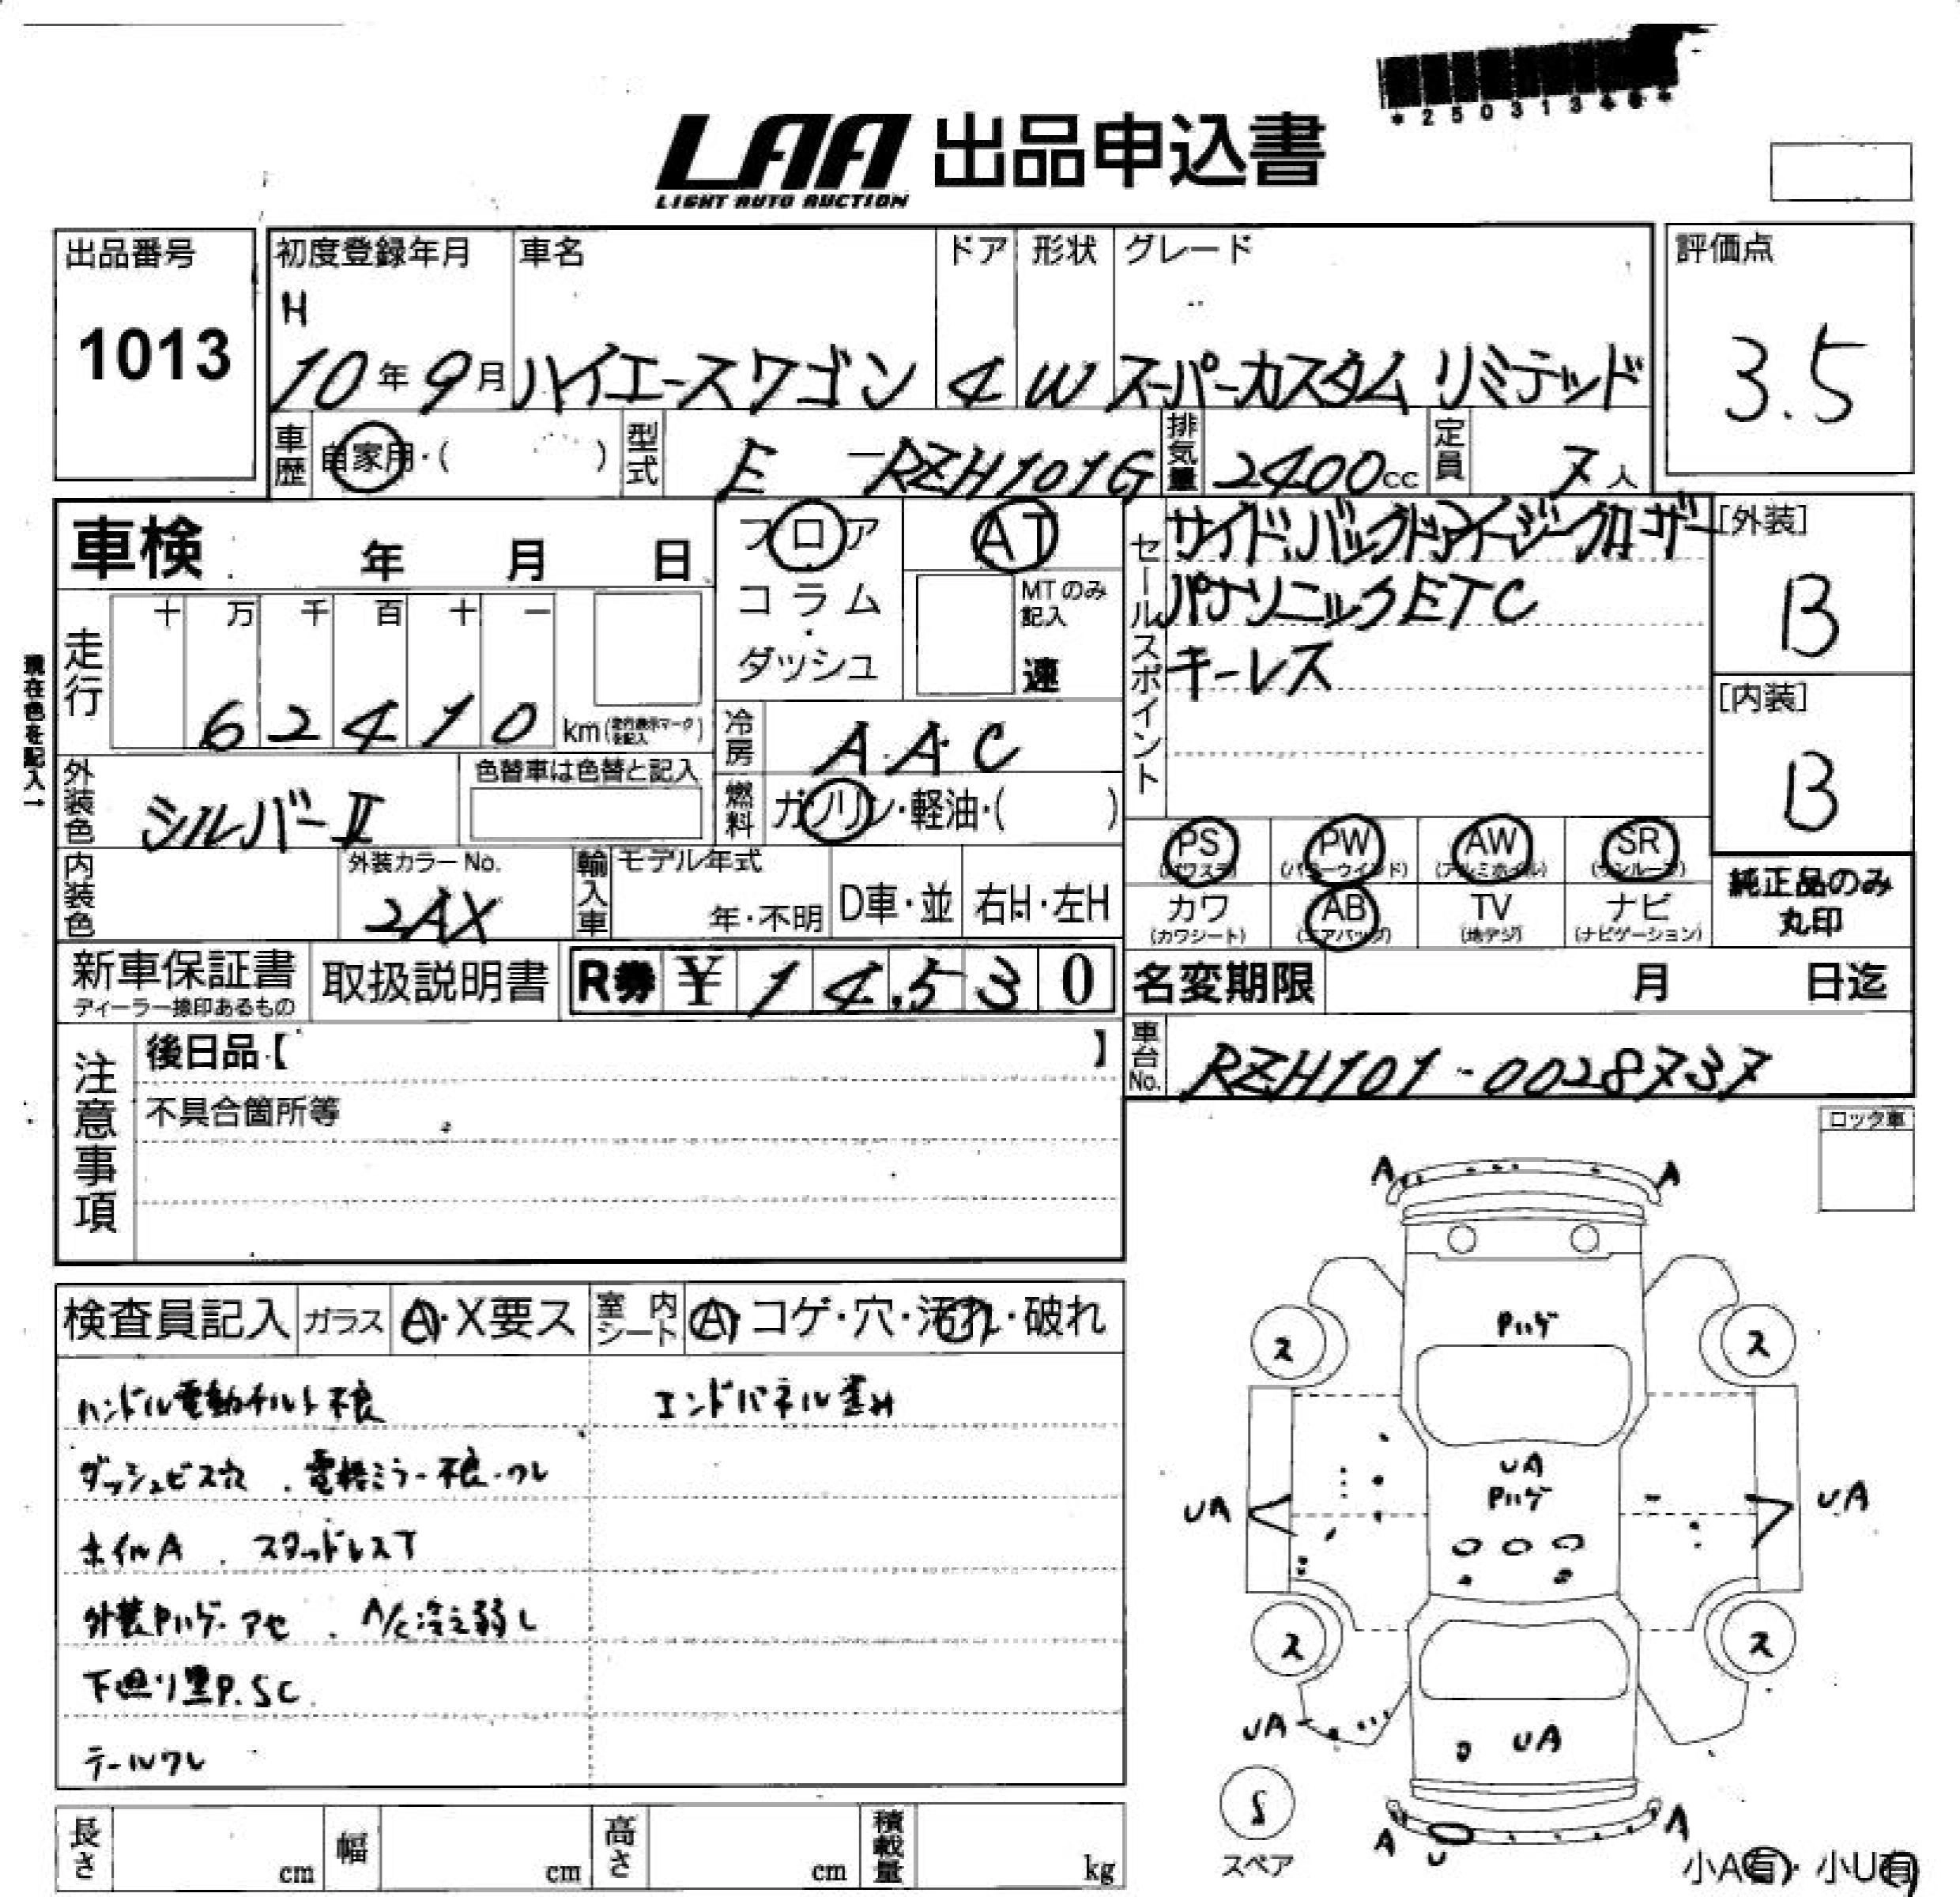 *250313
LAA 出品申込書
LIGHT AUTO AUCTION
出品番号
1013
初度登録年月 車名 ドア 形状 グレード
H
10年9月 ハイエースワゴン 4 W スーパーカスタム リミテッド
評価点
3.5
車歴 自家用・( ) 型式 E-RZH101G 排気量 2400cc 定員 7人
車検 年 月 日
フロア
コラム
・
ダッシュ
AT
MTのみ
記入
速
セールスポイント
サイド.バックドアイージークローザー
パナソニックETC
キーレス
[外装]
B
[内装]
B
現在色を記入→
走行 十 万 千 百 十 一
62410 km(走行表示マークを記入)
冷房 AAC
外装色 シルバーⅡ 色替車は色替と記入
燃料 ガソリン・軽油・( )
PS PW AW SR
(パワステ) (パワーウインド) (アルミホイル) (サンルーフ)
カワ AB TV ナビ
(カワシート) (エアバッグ) (地デジ) (ナビゲーション)
純正品のみ
丸印
内装色 外装カラーNo. 2AX
輸入車 モデル年式 年・不明 D車・並 右H・左H
新車保証書 取扱説明書 R券 ¥14,530
ディーラー捺印あるもの
名変期限 月 日迄
車台No. RZH101-0028737
注意事項
後日品【 】
不具合箇所等
ロック車
検査員記入 ガラス A・X要ス 室内シート A・コゲ・穴・汚れ・破れ
ハンドル電動チルト不良 エンドパネル歪み
ダッシュビス穴 . 電格ミラー不良・ワレ
ホイルA . スタッドレスT
外装Pハゲ・アセ . A/C冷え弱し
下廻り塗P.SC
テールワレ
A A
Pハゲ
ス ス
UA
Pハゲ
UA UA
ス ス
UA UA
S
スペア
A U A
小A有・小U有
長さ cm 幅 cm 高さ cm 積載量 kg